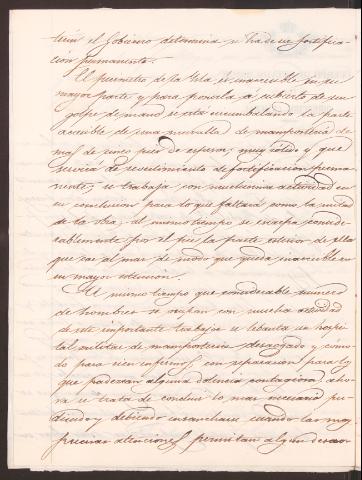 terin el Gobierno determina si ha de ser fortifica-
cion permanente.
El perimetro de la Isla es inaccesible en su
mayor parte y para ponerla á cubierto de un
golpe de mano se está circumbalando la parte
accesible de una muralla de mamposteria de
mas de cinco pies de espesor, muy sólido y que
servirá de revestimiento de fortificacion perma-
nente; se trabaja con muchisima actividad en
su conclusion para lo que faltará como la mitad
de la obra; al mismo tiempo se escarpa conside-
rablemente por el pie la parte exterior de ella
que cae al mar de modo que queda inaccesible en
su mayor estension.
Al mismo tiempo que considerable número
de hombres se ocupan con mucha actividad
de este importante trabajo se levanta un hospi-
tal militar de mamposteria desaogado y como-
do para cien enfermos con separacion para los
que padezcan alguna dolencia contagiosa: aho-
ra se trata de concluir lo mas necesario pu-
diendo y debiendo ensancharse cuando las mas
precisas atenciones permitan algun desao-